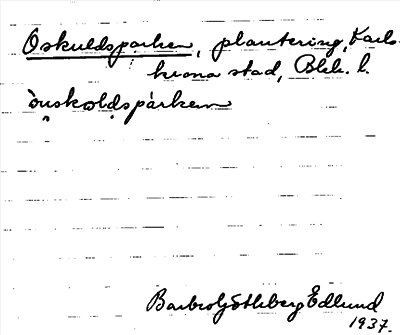 Oskuldsparken, plantering, Karls-
krona stad, Blek. l.
ònskoldspàrken
Barbro Göthberg Edlund
1937.